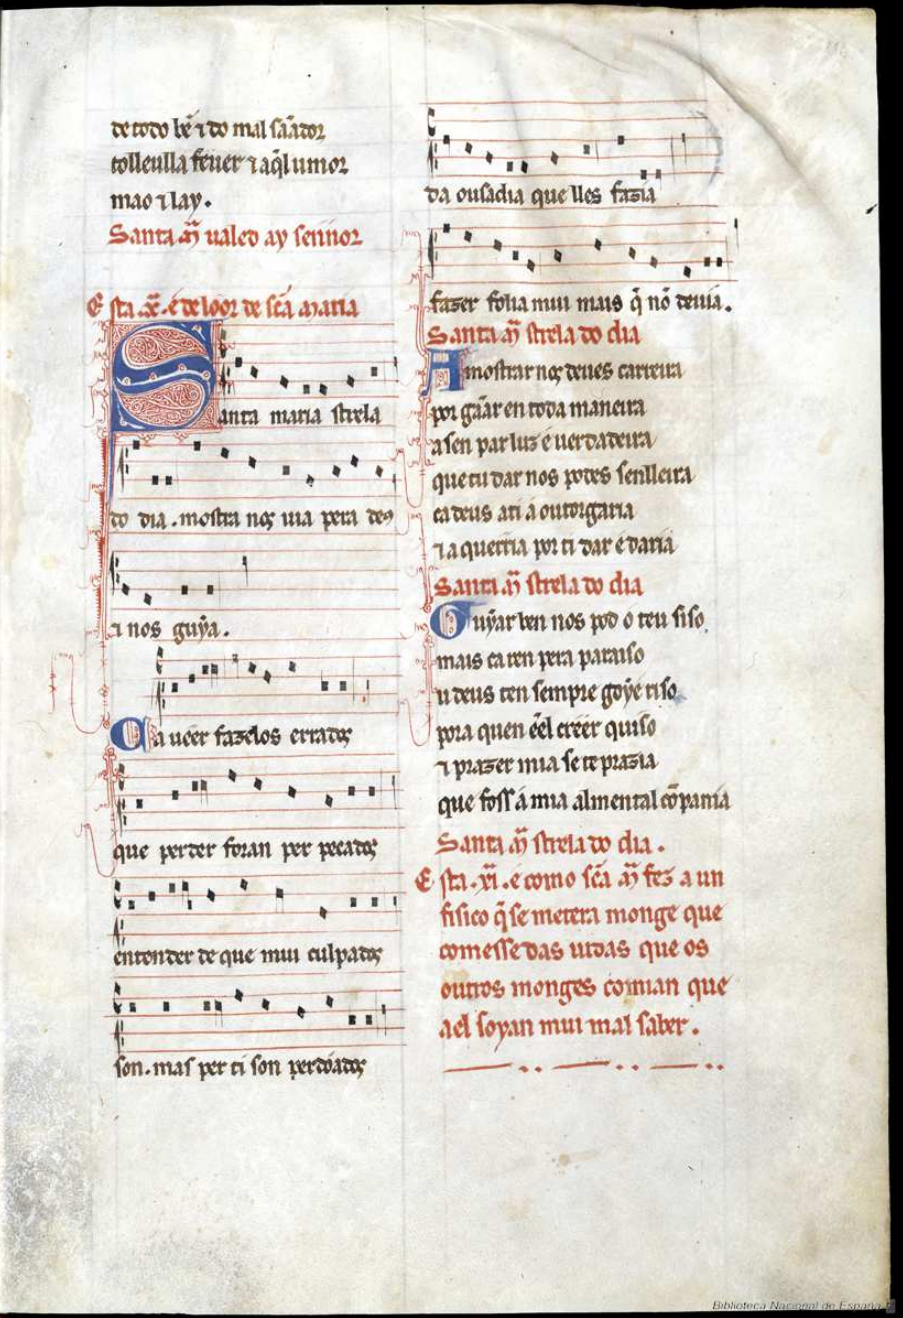 de todo bẽ ⁊ do mal sãador
tolleulla feuer ⁊ aq̃l umor
mao ⁊ lay.
Santa m̃ ualed ay sennor
Esta .xẽ. é de loor de scã maria
Santa maria strela
do dia . mostra nos uia pera de9
⁊ nos guýa.
Ca ueer fazelos errados
que perder foran per pecados
entender de que mui culpados
son. mas per ti son perdõados
da ousadia que lles fazia
fazer folia mui mais q̃ nõ deuia.
Santa m̃ strela do dia
Amostrar nos deues carreira
por gãar en toda maneira
a sen par luz e uerdadeira
que tu dar nos podes senlleira
ca deus a ti á outorgaria
⁊ a querria por ti dar e daria
Santa m̃ strela do dia
Guýar ben nos pod o teu siso
mais ca ren pera paraiso
u deus ten sempre goýe riso
pora quen éel creer quiso
⁊ prazer mia se te prazia
que foss á mia alma en tal cõpania
Santa m̃ strela do dia .
Esta .xi . e como scã m̃ fez a un
fisico q̃ se metera monge que
comesse das uidas que os
outros monges comian que
a el soyan mui mal saber .
Biblioteca Nacional de España